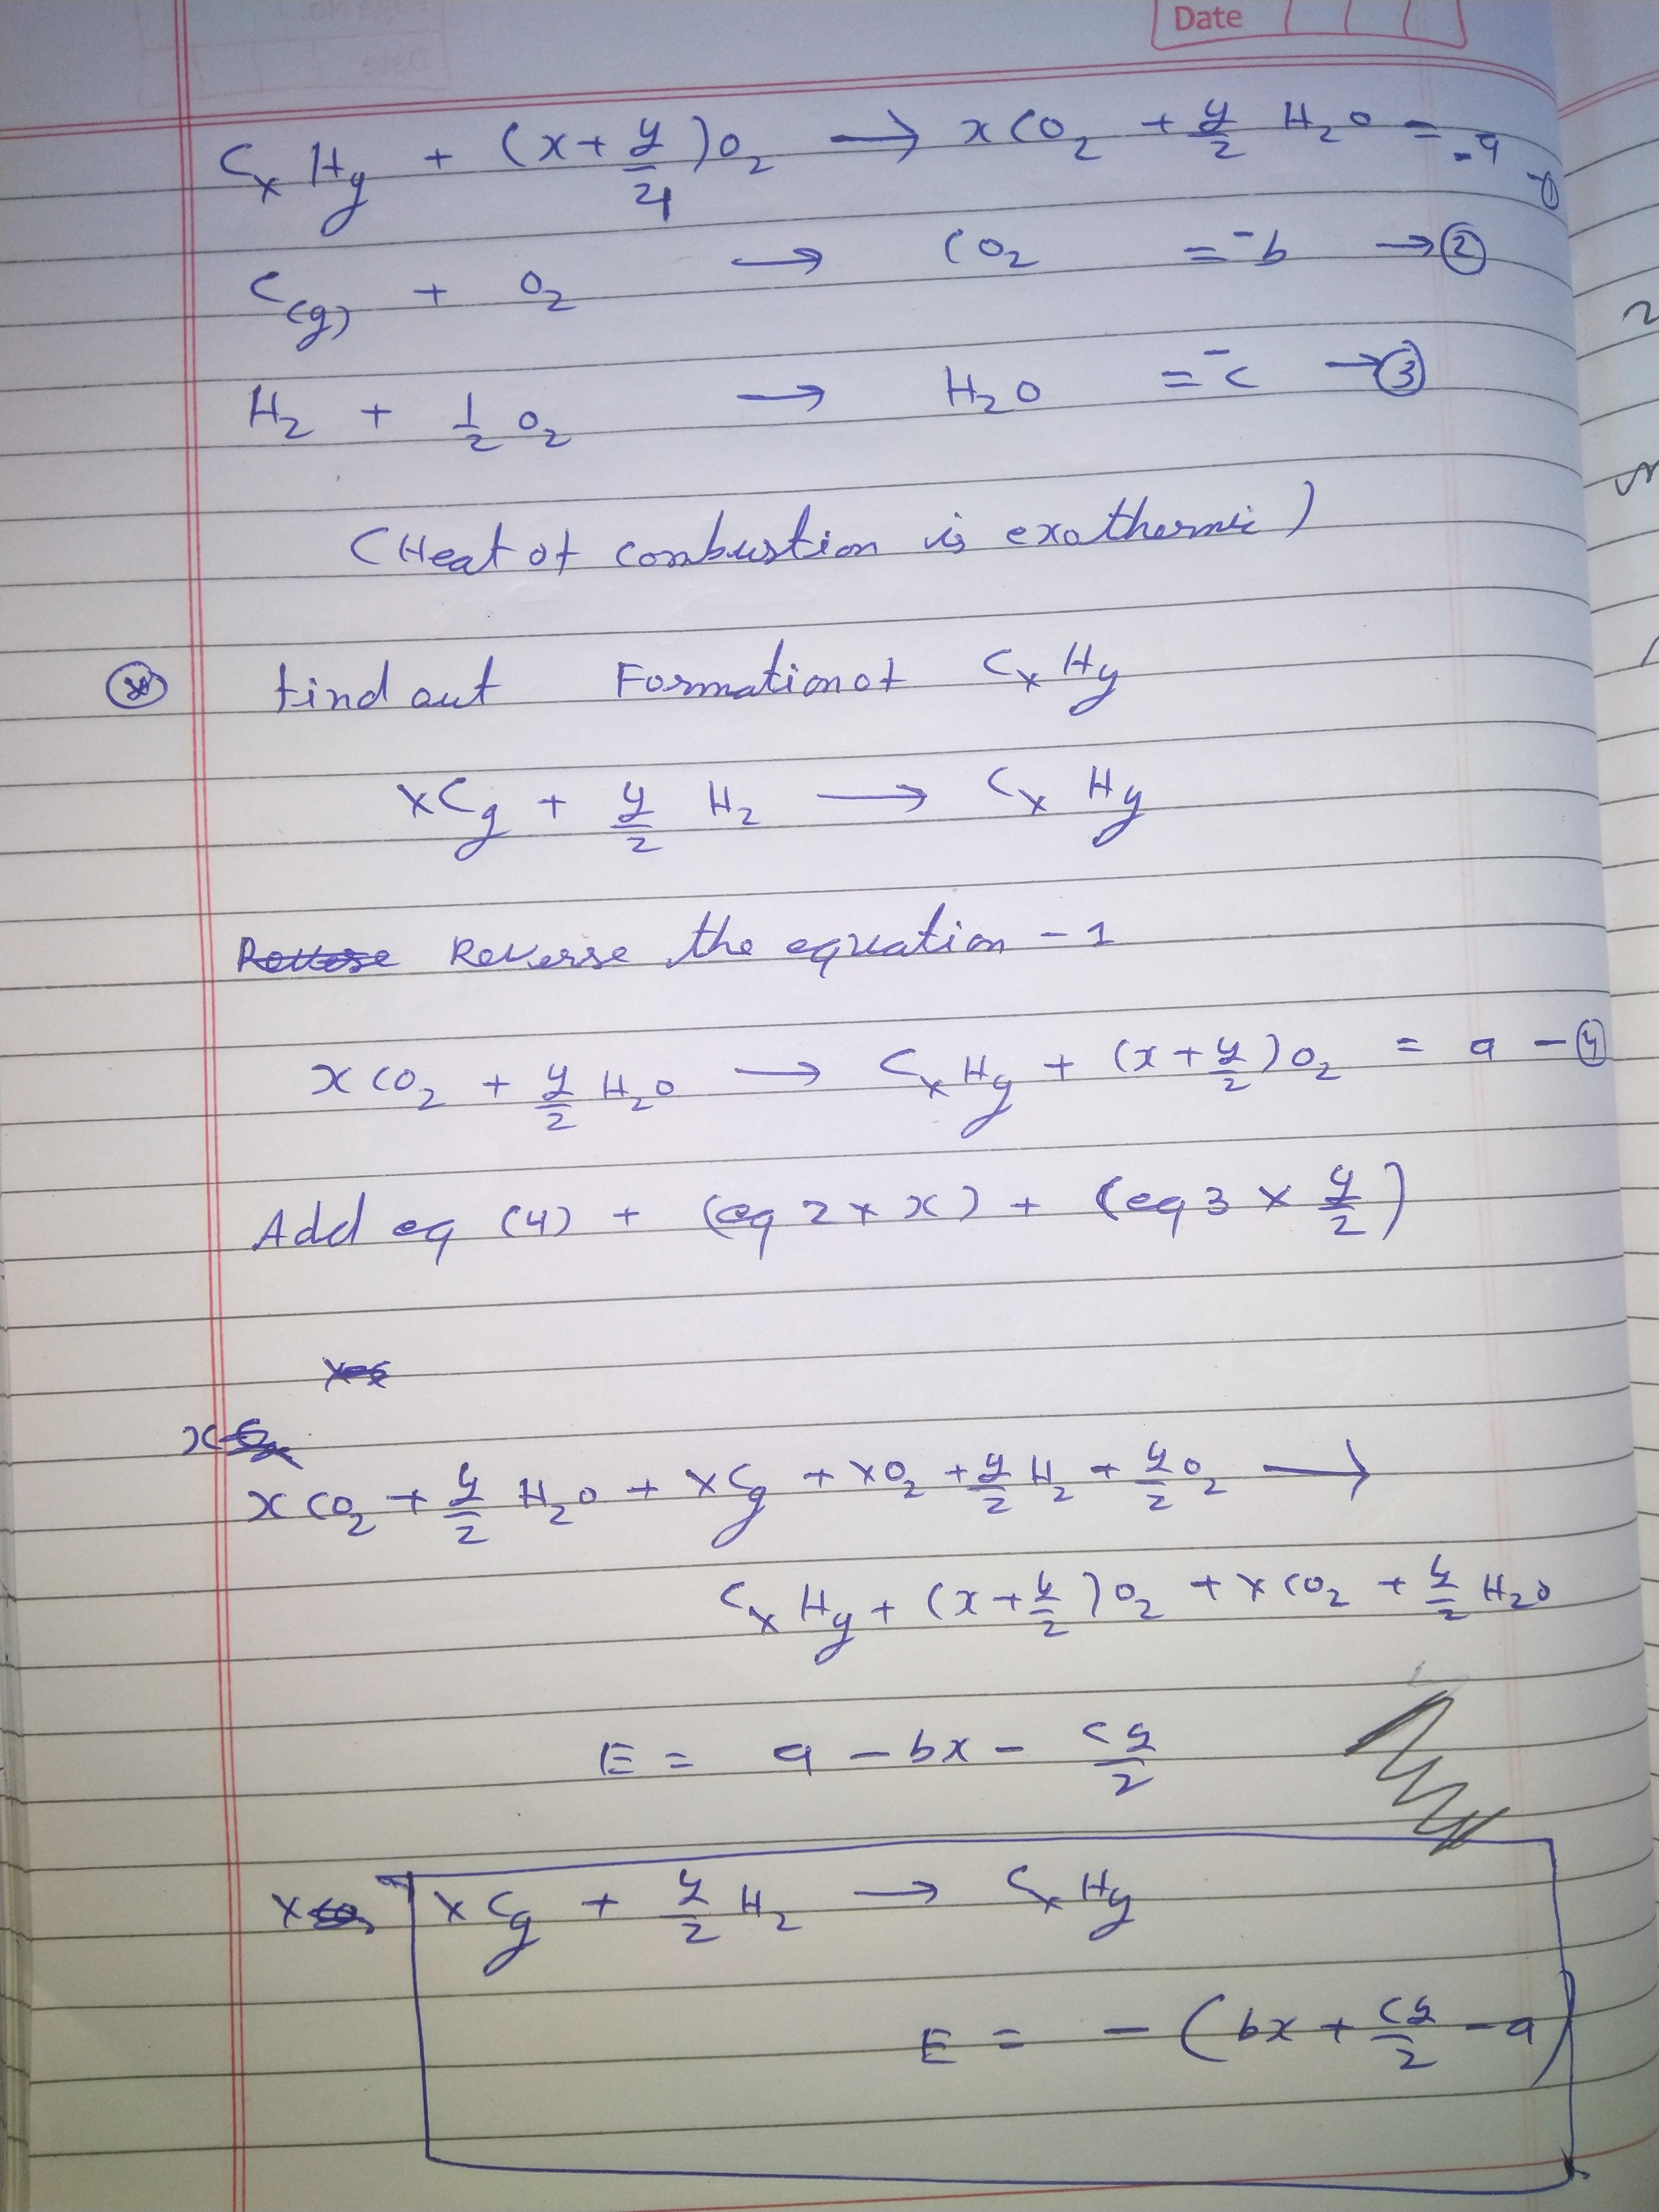 Date
CₓHy + (x + y/4)O₂ → xCO₂ + y/2 H₂O = -a →①
C(g) + O₂ → CO₂ = -b →②
H₂ + 1/2 O₂ → H₂O = -c →③
(Heat of combustion is exothermic)
find out Formation of CₓHy
xCg + y/2 H₂ → CₓHy
Reverse the equation - 1
xCO₂ + y/2 H₂O → CₓHy + (x + y/2)O₂ = a - ④
Add eq (4) + (eq 2 × x) + (eq 3 × y/2)
xCO₂ + y/2 H₂O + xCg + xO₂ + y/2 H₂ + y/2 O₂ →
CₓHy + (x + y/2)O₂ + xCO₂ + y/2 H₂O
E = a - bx - cy/2
xCg + y/2 H₂ → CₓHy
E = -(bx + cy/2 - a)